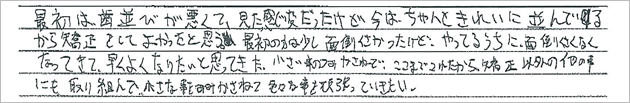 最初は歯並びが悪くて、見た感じ変だったけど今はちゃんときれいに並んでいる
から矯正をしてよかったと思う。最初の方は少し面倒くさかったけど、やってるうちに、面倒くさくなく
なってきて、早くよくなりたいと思ってきた。小さい事のつみかさねで、ここまでこれたから、矯正以外の他の事
にも取り組んで、小さな事をつみかさねて色々な事を頑張っていきたい。